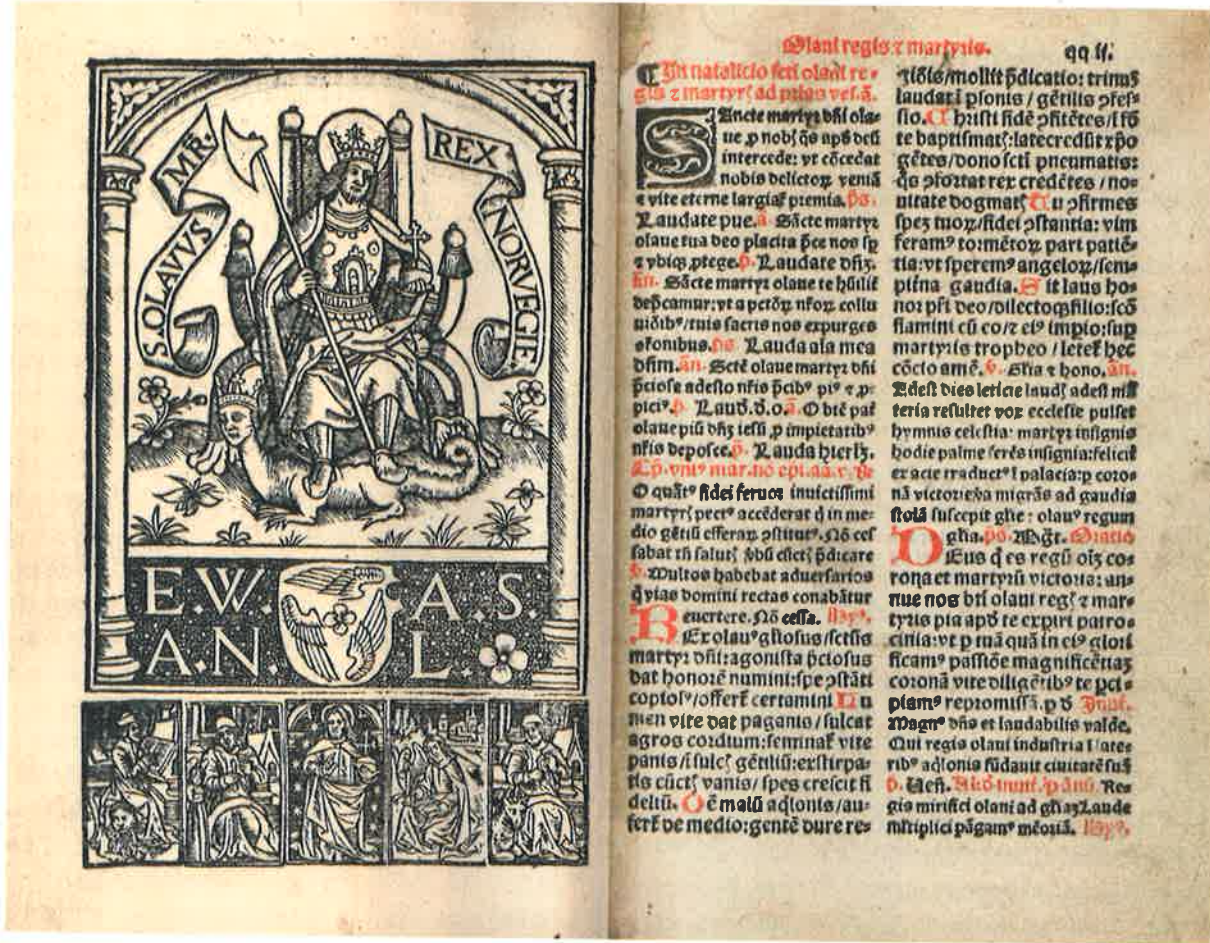 S. OLAVVS MR̃.
REX NORVEGIE.
E.W. A.S.
A.N. L.
Olaui regis ⁊ martyris. qq ij.
¶ In natalicio scti olaui re-
gis ⁊ martyrꝭ ad primas ves. ã.
SAncte martyr dñi ola-
ue ꝓ nobꝭ q̃s apd̃ deũ
intercede: vt cõcedat
nobis delictoꝝ veniã
⁊ vite eterne largiat̃ premia. p̃s.
Laudate pue. ã. Sãcte martyr
olaue tua deo placita p̃ce nos sp̃
⁊ vbiqꝫ ꝓtege. p̃. Laudate dñꝫ.
ãn. Sãcte martyr olaue te hũilit̃
dep̃camur: vt a petõꝝ nr̃oꝝ collu
uiõibꝰ/tuis sacris nos expurges
p̃s. Lauda aĩa mea
dñm. ãn. Sctẽ olaue martyr dñi
p̃ciose adesto nr̃is p̃cibꝰ piꝰ ⁊ ꝓ-
piciꝰ. p̃. Laud̃.d.o. ã. O btẽ pat̃
olaue piũ dñꝫ iesũ ꝓ impietatibꝰ
nr̃is deposce. p̃. Lauda hierl̃ꝫ.
Cp̃. vniꝰ mar. nõ epi. aã. v. R̃
O quãtꝰ fidei feruor inuictissimi
martyrꝭ pectꝰ accẽderat q̃ in me-
dio gẽtiũ efferaꝝ ꝯstitutꝰ. Nõ ces
sabat tñ salutꝭ v̾bũ eiscꝭ p̃dicare
v̾. Multos habebat aduersarios
q̃ vias domini rectas conabãtur
euertere. Nõ cessa. Hyꝰ.
REx olauꝰ gl̃iosus/fctsis
martyr dñi: agonista p̃ciosus
dat honorẽ numini: spe ꝯstãti
copiolꝰ/offert̃ certamini. Lu
men vite dat paganis/sulcat
agros cordium: seminat̃ vite
panis/ĩ sulcꝭ gẽtiliũ: exstirpa-
tis cũctꝭ vanis/spes crescit fi
deliũ. Oẽ malũ aq̃lonis/au-
fert̃ de medio: gentẽ dure re-
tiõis/mollit p̃dicatio: trinuꝫ
laudatĩ psonis/gẽtilis ꝯfes-
sio. Christi fidẽ ꝯfitẽtes/ĩ fõ
te baptismatꝭ: late credũt xp̃o
gẽtes/dono scti pneumatis:
q̃s ꝯfortat rex credẽtes/no-
uitate dogmatꝭ. Tu ꝯfirmes
speꝫ tuoꝝ/fidei ꝯstantia: vim
feramꝰ tormẽtoꝝ part patiẽ-
tia: vt speremꝰ angeloꝝ/sem-
piina gaudia. Sit laus ho-
nor pr̃i deo/dilectoqꝫ filio: scõ
flamini cũ eo/⁊ eiꝰ impio: sup̃
martyris tropheo/letet̃ hec
cõcio amẽ. v̾. Gl̃ia ⁊ hono. ãn.
Adest dies leticie laudꝭ adest ma
teria resultet vox ecclesie pulset
hymnis celestia: martyr insignis
hodie palme ferẽs insignia: felicit̃
ex acie traducꝰ ĩ palacia: ꝓ coro-
nã victorie v̾a migrãs ad gaudia
stolã suscepit glie: olauꝰ regum
glia. p̃s. Mg̃t. Oratio
DEus q̃ es regũ oĩꝫ co-
rona et martyrũ victoria: an-
nue nos bti olaui regꝭ ⁊ mar-
tyris pia apd̃ te expiri patro-
cinia: vt ꝑ tuã quã in eiꝰ glori
ficamꝰ passiõe magnificẽtiaꝫ
coronã vite diligẽtibꝰ te ꝑci-
piamꝰ repromissã. ꝑ d̃ Inuit.
Magnꝰ dñs et laudabilis valde.
Qui regis olaui industria
ribꝰ aq̃lonis fũdauit ciuitatẽ suã
p̃. Uen̄. Re-
gis mirifici olaui ad gl̃iaꝫ Laude
mltiplici pãgamꝰ mẽoriã. Hyꝰ.